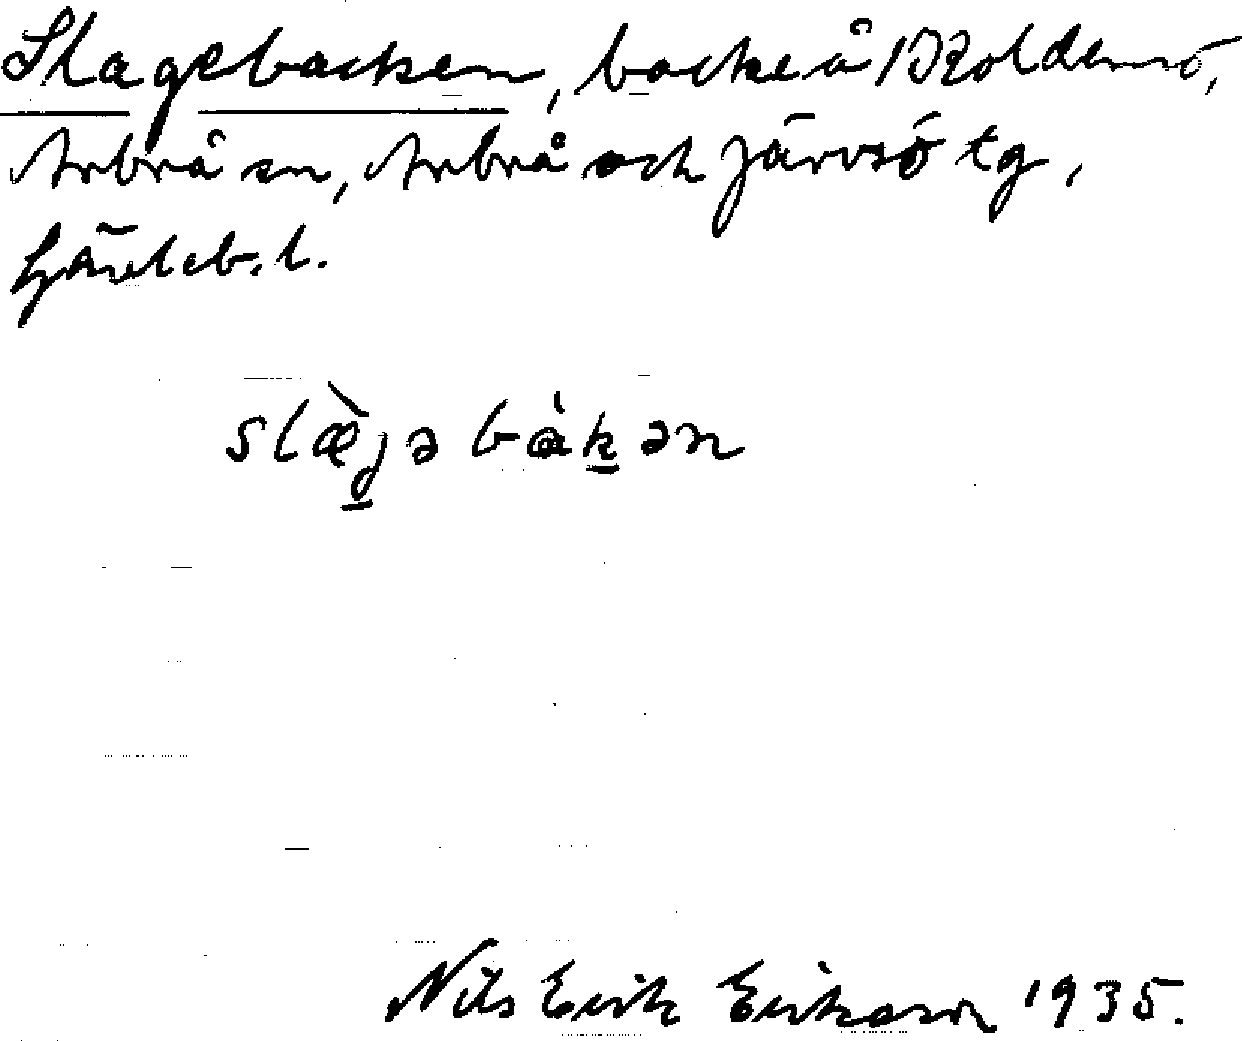 Slagebacken, backe å 1 Koldemo,
Arbrå sn, Arbrå och Järvsö tg,
Gävleb. l.
slæ̀gə bàkən
Nils Erik Erikson 1935.